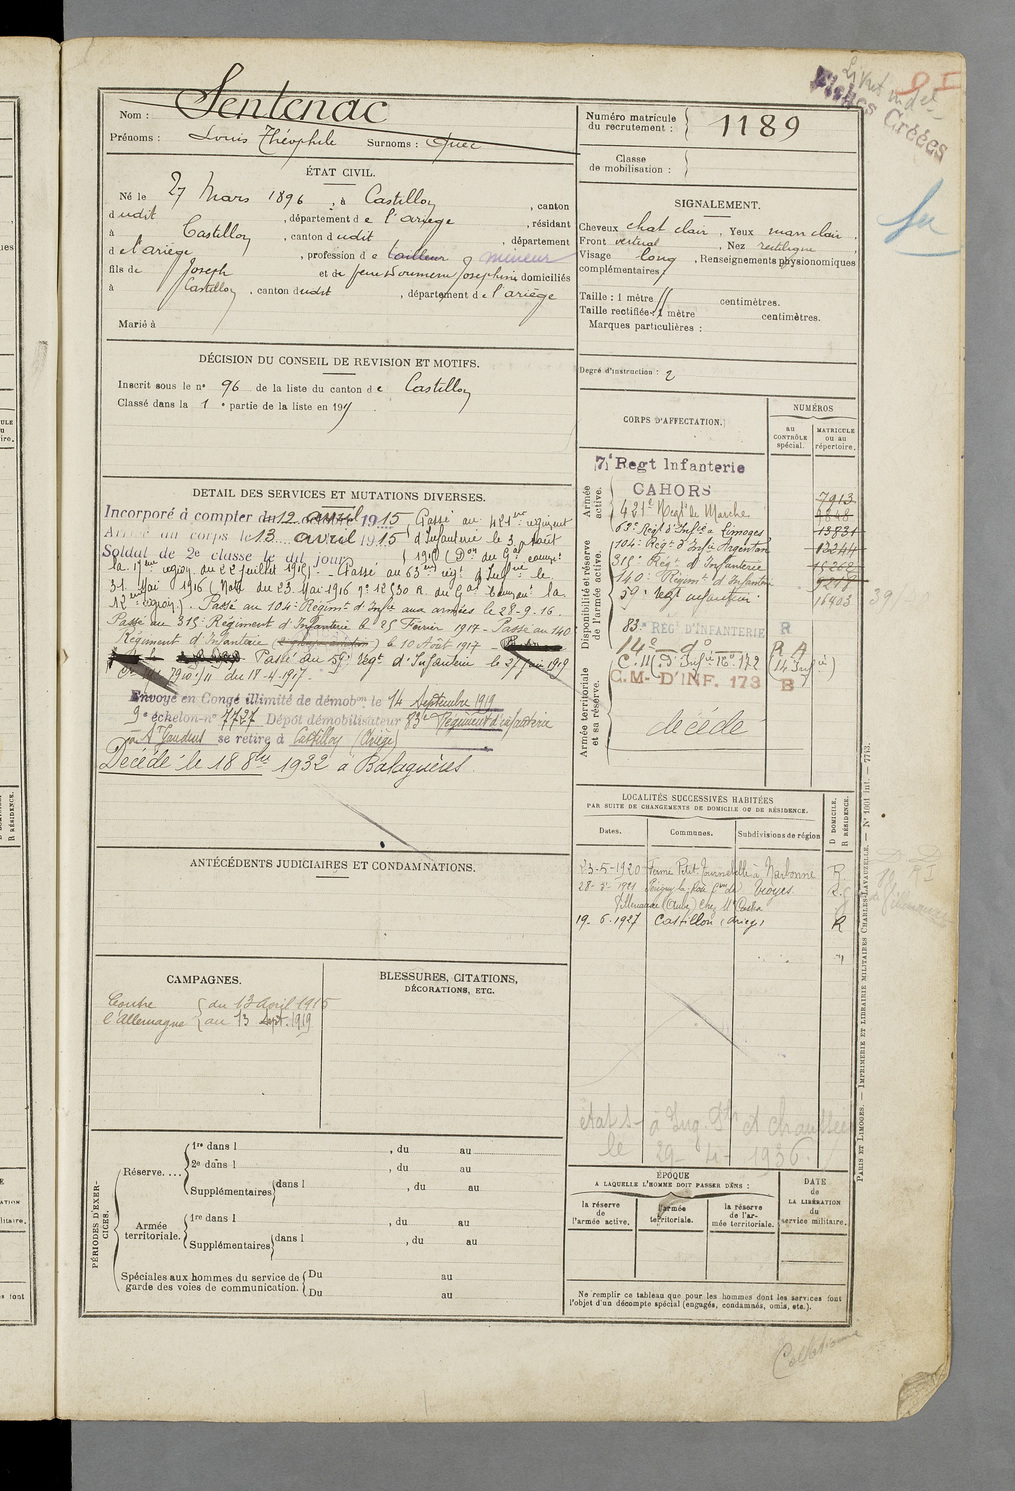 Fiches Créées
Nom : Sentenac
Prénoms : Louis Théophile Surnoms : Quer
Numéro matricule
du recrutement : 1189
Classe
de mobilisation :
ÉTAT CIVIL.
Né le 27 Mars 1896, à Castillon, canton
dudit, département de l'ariège, résidant
à Castillon, canton dudit, département
de l'ariège, profession de tailleur mineur
fils de Joseph et de feue Doumenc Josephine domiciliés
à Castillon, canton dudit, département de l'ariège
Marié à
SIGNALEMENT.
Cheveux chat clair, Yeux marr clair,
Front vertical, Nez rectiligne
Visage long, Renseignements physionomiques
complémentaires
Taille : 1 mètre centimètres.
Taille rectifiée : 1 mètre centimètres.
Marques particulières :
Degré d'instruction : 2
DÉCISION DU CONSEIL DE REVISION ET MOTIFS.
Inscrit sous le n° 96 de la liste du canton de Castillon
Classé dans la 1e partie de la liste en 191
DÉTAIL DES SERVICES ET MUTATIONS DIVERSES.
Incorporé à compter du 12 avril 1915 Passé au 421me régiment
Arrivé au corps le 13 avril 1915 d'Infanterie le 3 Août
Soldat de 2e classe le dit jour 1915 (Don du Gal commt
la 17me région du 22 juillet 1915). - Passé au 63me régt d'Infie le
31 Mai 1916 (Note du 23 Mai 1916 n° 12630 R. du Gal Commt la
12me région). Passé au 104e Régimt d'Infie aux armées le 28-9-16.
Passé au 315e Régiment d'Infanterie le 25 Février 1917 - Passé au 140
Régiment d'Infanterie le 10 Août 1917 -
Passé au 59e Régt d'Infanterie le 21 juin 1919
du 18-4-1917.-
Envoyé en Congé illimité de démobon le 14 Septembre 1919
9e échelon n° 7727 Dépôt démobilisateur 83e Régiment d'infanterie
St Gaudens se retire à Castillon (Ariège)
Décédé le 18 8bre 1932 à Balaguères.
CORPS D'AFFECTATION.
NUMÉROS
au CONTRÔLE spécial.
MATRICULE ou au répertoire.
Armée active.
7e Regt Infanterie
CAHORS 7913
421e Regt de Marche
Disponibilité et réserve de l'armée active.
63e Régt d'Infie à Limoges 13831
104e Régt d'Infie Argentan 13244
315e Régt d'Infanterie
140e Régimt d'Infanterie
59e Regt infanterie 16403
83e REGt D'INFANTERIE R
14e do R A
C.M. D'INF. 173 B
Armée territoriale et sa réserve.
décédé
LOCALITÉS SUCCESSIVES HABITÉES
PAR SUITE DE CHANGEMENTS DE DOMICILE OU DE RÉSIDENCE.
Dates. Communes. Subdivisions de région
D DOMICILE. R RÉSIDENCE.
23-5-1920 Ferme Petit Tournebelle à Narbonne R
Troyes R
Villenauxe (Aube) Chez Mr
19.6.1927 Castillon (Ariège) R
ANTÉCÉDENTS JUDICIAIRES ET CONDAMNATIONS.
CAMPAGNES.
Contre { du 13 Avril 1915
l'Allemagne { au 13 Sept. 1919
BLESSURES, CITATIONS,
DÉCORATIONS, ETC.
le 29-4-1936.
PÉRIODES D'EXERCICES.
Réserve....
1re dans l , du au
2e dans l , du au
Supplémentaires dans l , du au
Armée territoriale.
1re dans l , du au
Supplémentaires dans l , du au
Spéciales aux hommes du service de Du au
garde des voies de communication. Du au
ÉPOQUE
A LAQUELLE L'HOMME DOIT PASSER DANS :
la réserve de l'armée active.
l'armée territoriale.
la réserve de l'armée territoriale.
DATE de LA LIBÉRATION du service militaire.
Ne remplir ce tableau que pour les hommes dont les services font
l'objet d'un décompte spécial (engagés, condamnés, omis, etc.).
PARIS ET LIMOGES. — IMPRIMERIE ET LIBRAIRIE MILITAIRES CHARLES-LAVAUZELLE.